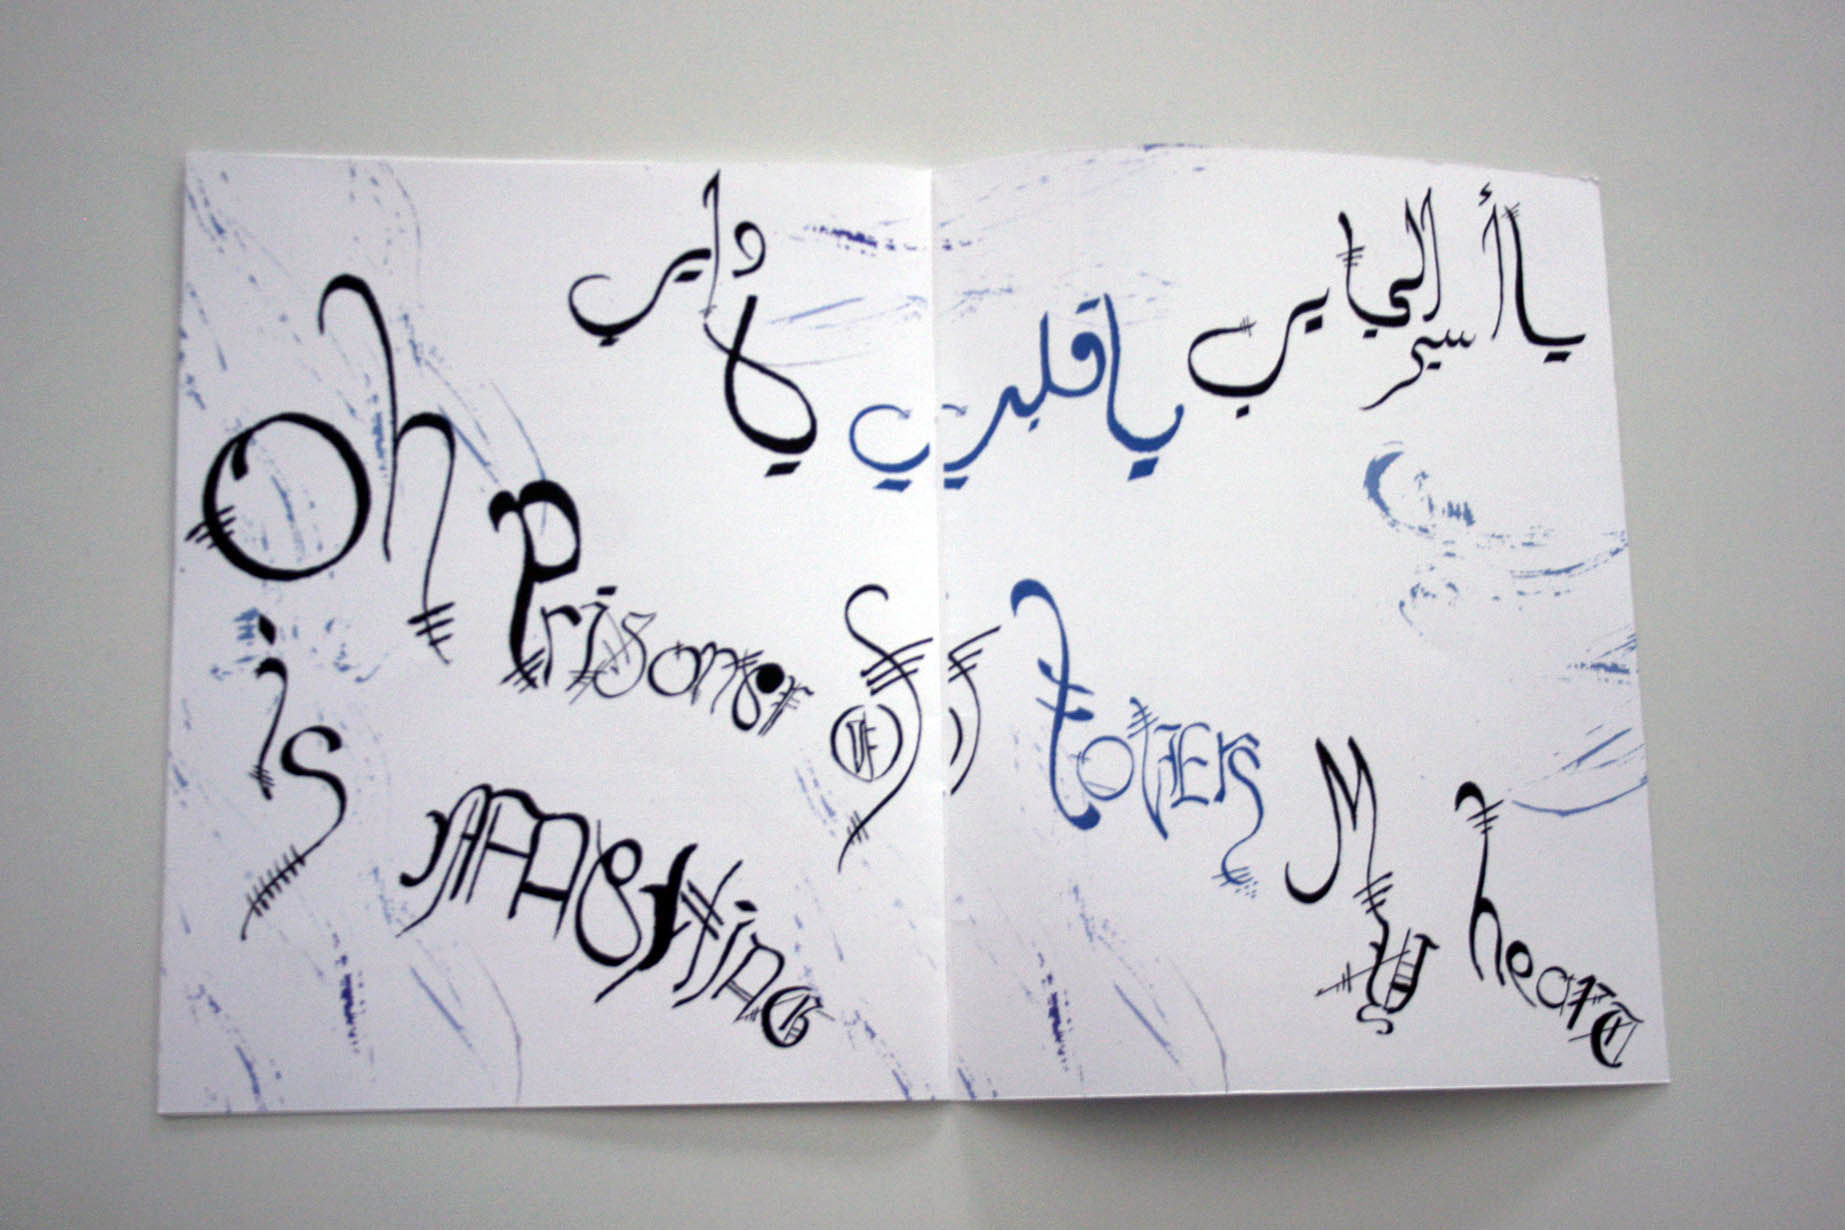 يا أسير الحبايب يا قلبي يا دايب
Oh Prisoner OF lovers My heart
is